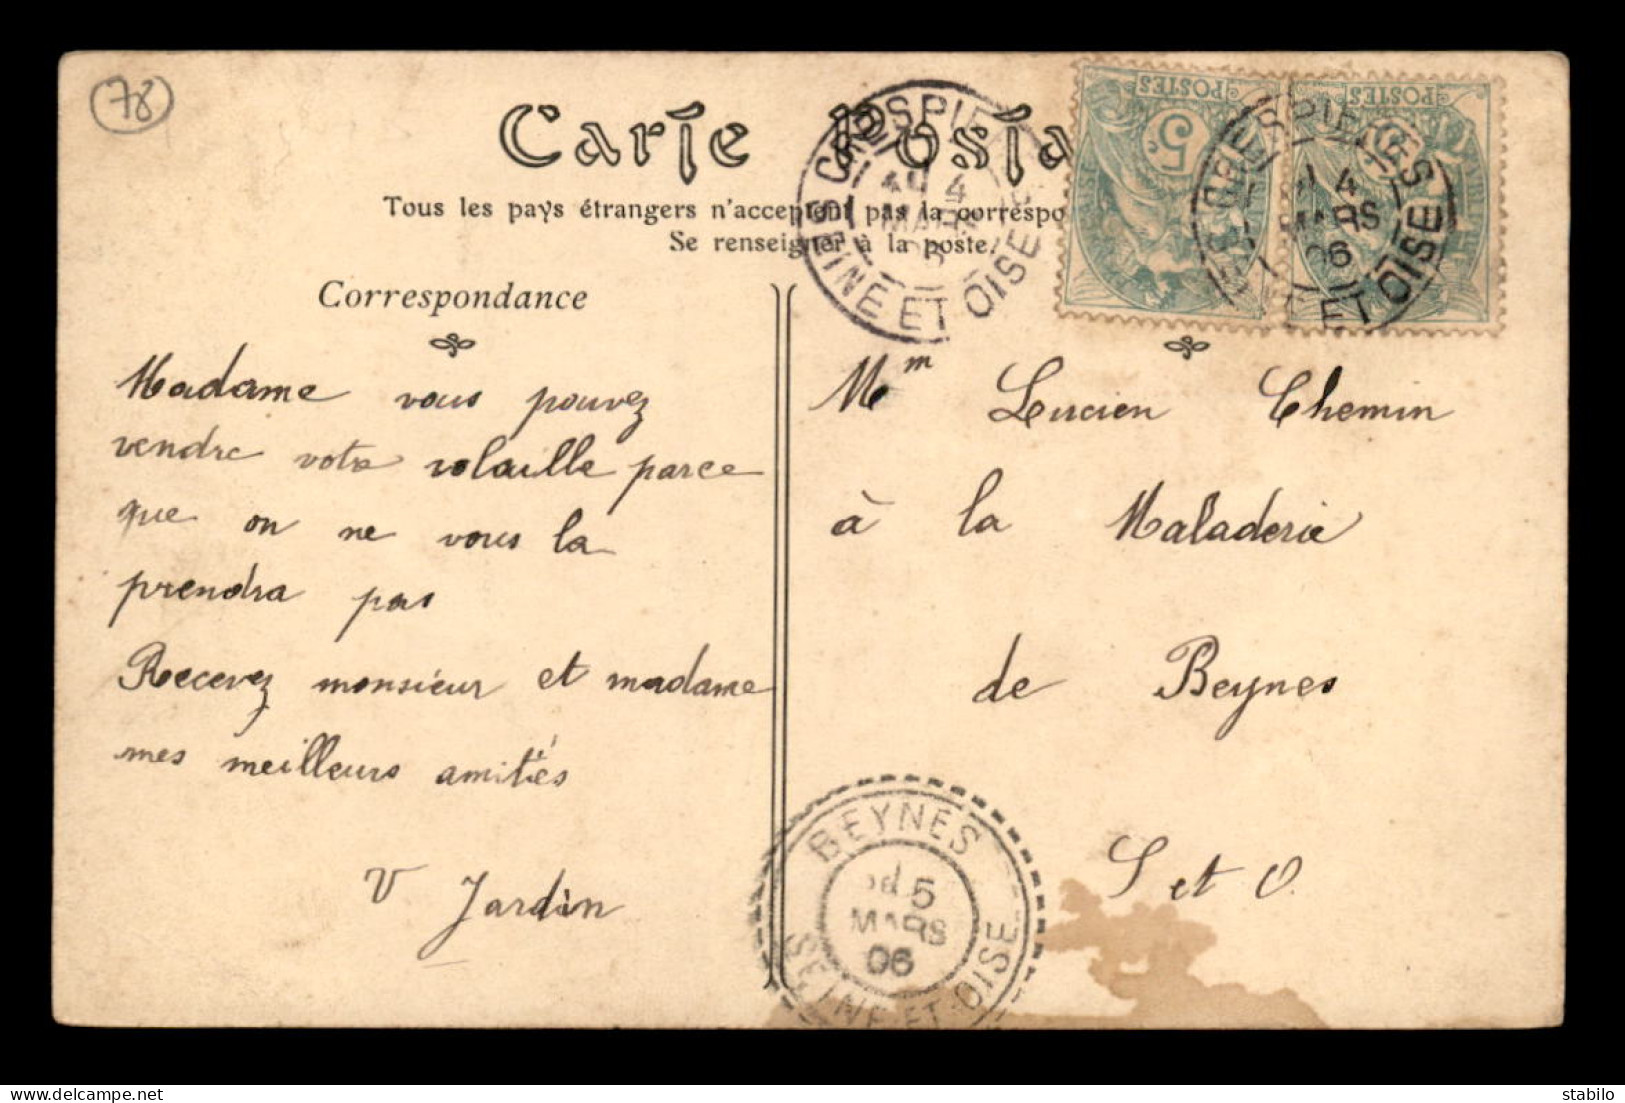 78
Carte Posta
Tous les pays étrangers n'acceptent pas la correspo
Se renseigner à la poste.
Correspondance
Madame vous pouvez
vendre votre volaille parce
que on ne vous la
prendra pas
Recevez monsieur et madame
mes meilleurs amitiés
V Jardin
POSTES
5c
POSTES
CRESPIERES
4
MARS
06
SEINE ET OISE
CRESPIERES
4
MARS
06
ET OISE
Mm Lucien Chemin
à la Maladerie
de Beynes
S et O.
BEYNES
5
MARS
06
SEINE ET OISE
stabilo
www.delcampe.net